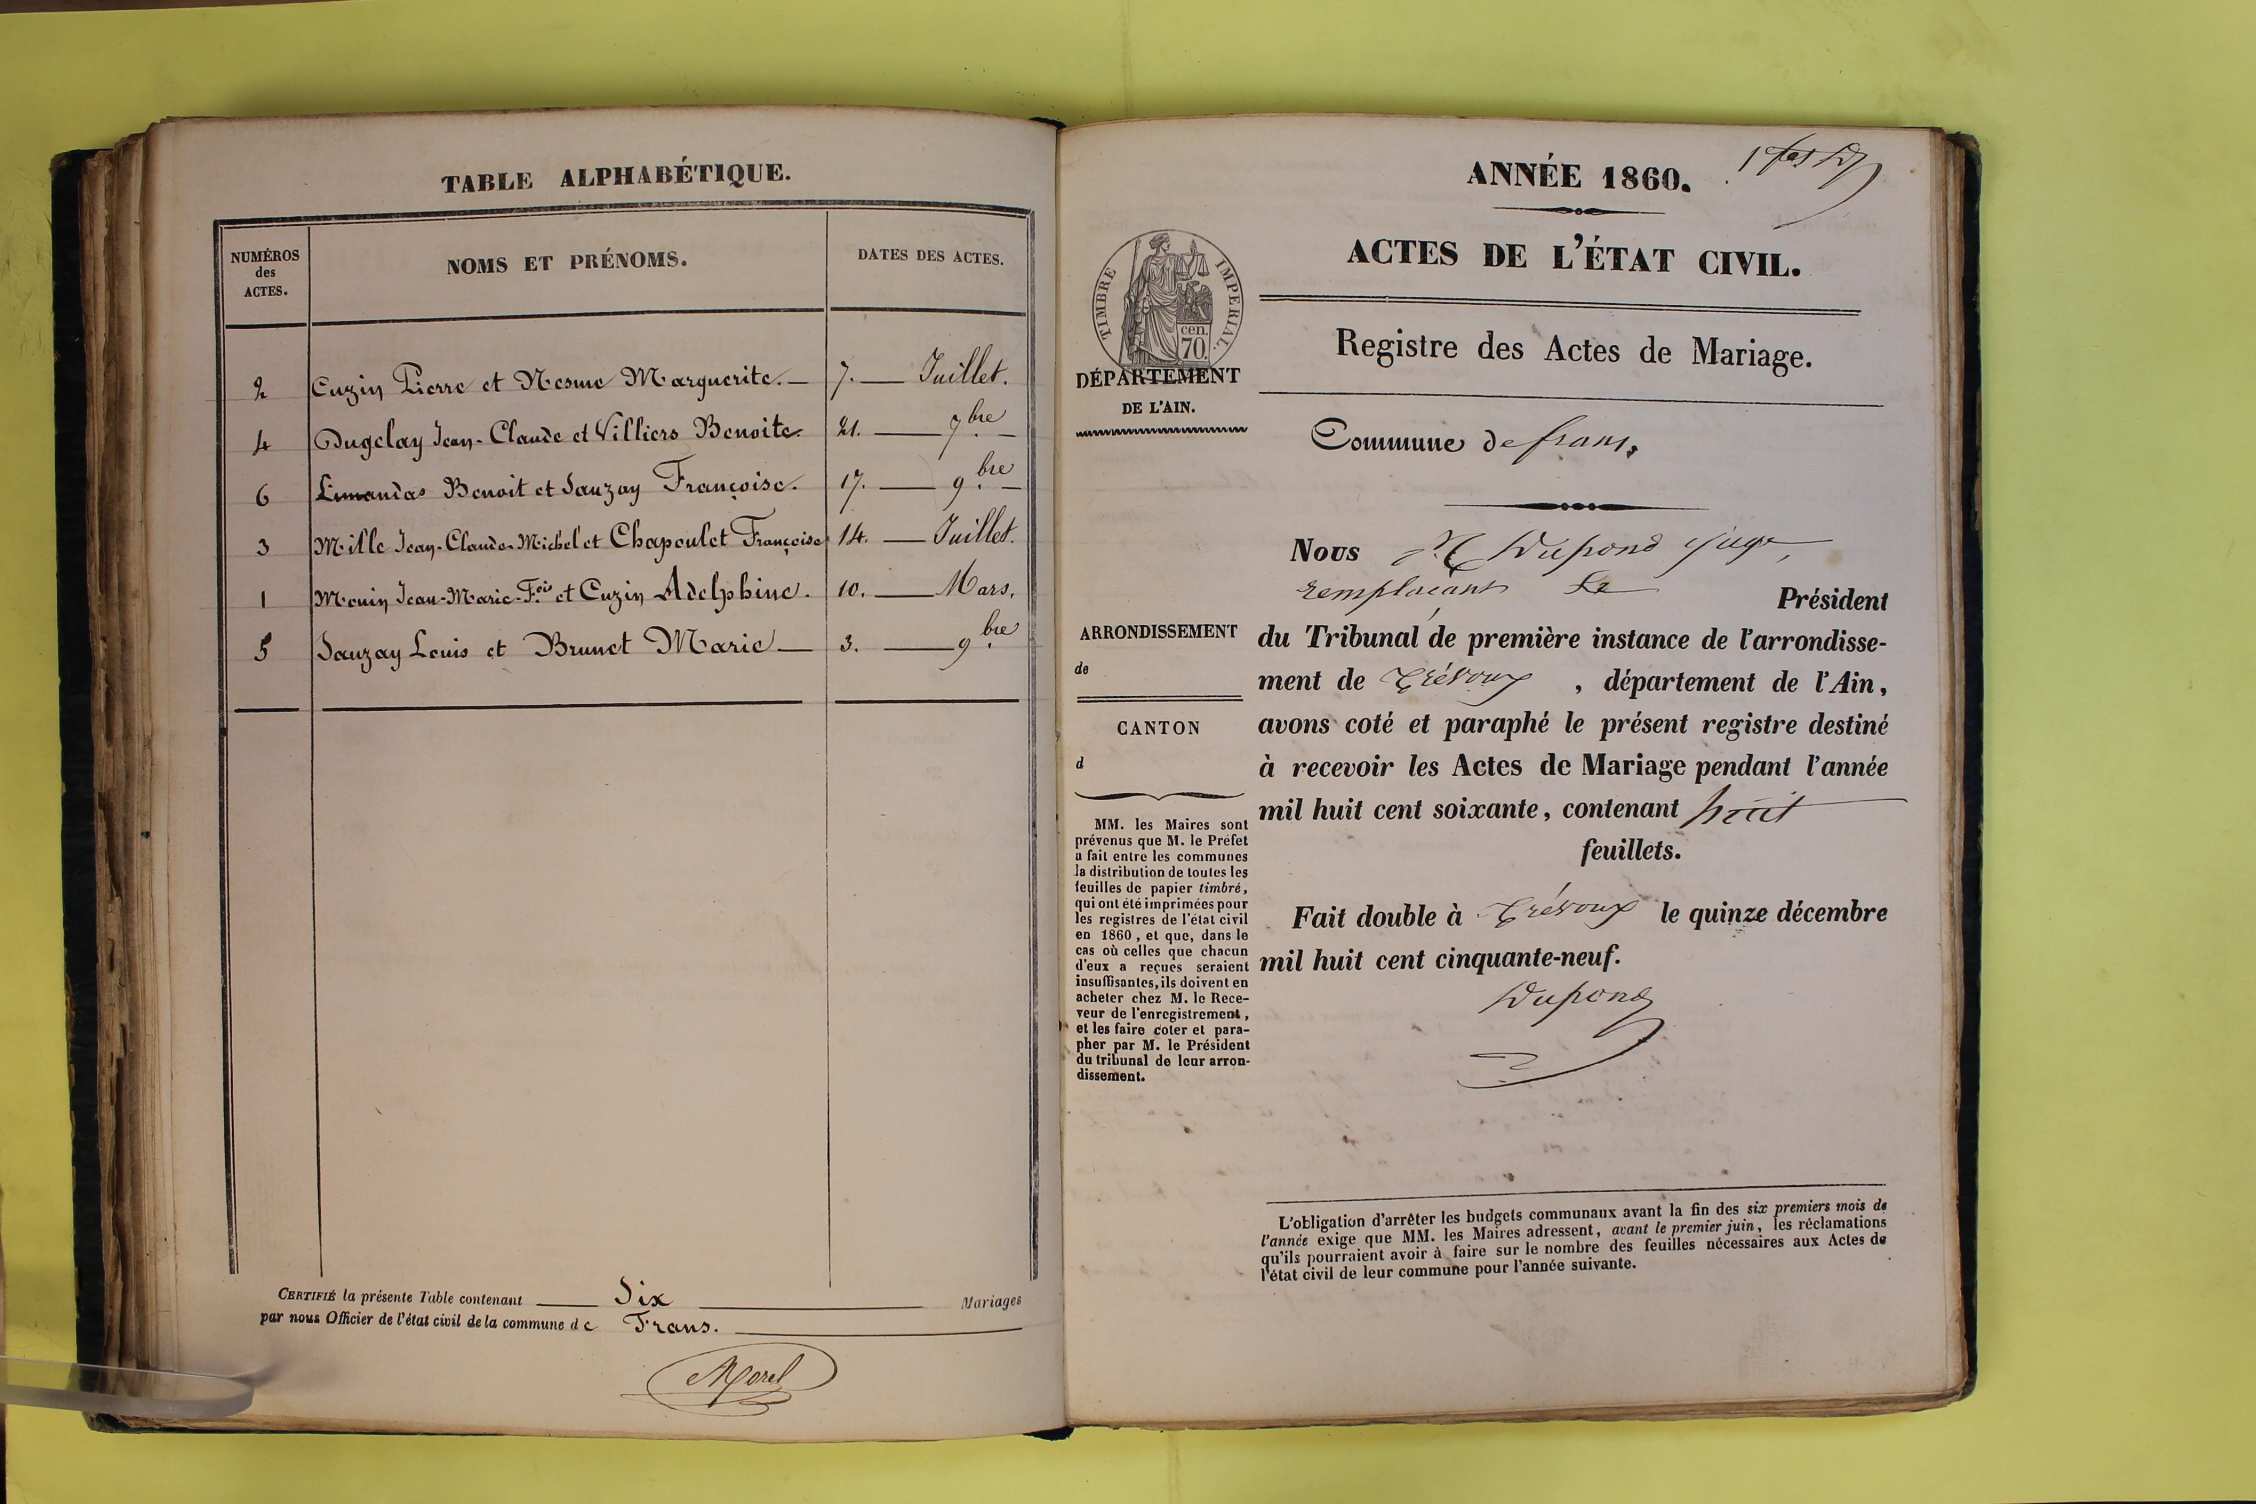 TABLE ALPHABÉTIQUE.
NUMÉROS
des
ACTES.
NOMS ET PRÉNOMS.
DATES DES ACTES.
2 Cuzin Pierre et Nesme Marguerite. — 7. — Juillet.
4 Dugelay Jean-Claude et Villiers Benoite. 21. — 7bre —
6 Limandas Benoit et Sauzay Françoise. 17. — 9bre —
3 Mille Jean-Claude-Michel et Chapoulet Françoise 14. — Juillet.
1 Mouin Jean-Marie-Fois et Cuzin Adelphine. 10. — Mars.
5 Sauzay Louis et Brunet Marie — 3. — 9bre
CERTIFIÉ la présente Table contenant Six Mariages
par nous Officier de l'état civil de la commune de Frans.
Morel
ANNÉE 1860.
ACTES DE L'ÉTAT CIVIL.
TIMBRE IMPERIAL.
cen.
70.
Registre des Actes de Mariage.
DÉPARTEMENT
DE L'AIN.
Commune de frans,
Nous Dupond juge,
remplaçant le Président
ARRONDISSEMENT
de
CANTON
d
du Tribunal de première instance de l'arrondisse-
ment de Trévoux , département de l'Ain,
avons coté et paraphé le présent registre destiné
à recevoir les Actes de Mariage pendant l'année
mil huit cent soixante, contenant huit
feuillets.
Fait double à Trévoux le quinze décembre
mil huit cent cinquante-neuf.
Dupond
MM. les Maires sont
prévenus que M. le Préfet
a fait entre les communes
la distribution de toutes les
feuilles de papier timbré,
qui ont été imprimées pour
les registres de l'état civil
en 1860, et que, dans le
cas où celles que chacun
d'eux a reçues seraient
insuffisantes, ils doivent en
acheter chez M. le Rece-
veur de l'enregistrement,
et les faire coter et para-
pher par M. le Président
du tribunal de leur arron-
dissement.
L'obligation d'arrêter les budgets communaux avant la fin des six premiers mois de
l'année exige que MM. les Maires adressent, avant le premier juin, les réclamations
qu'ils pourraient avoir à faire sur le nombre des feuilles nécessaires aux Actes de
l'état civil de leur commune pour l'année suivante.